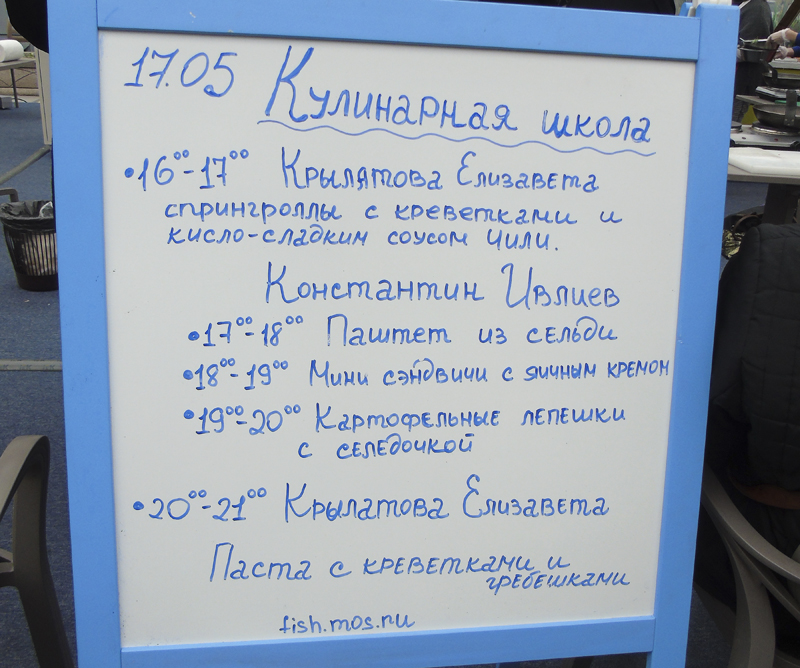 17.05 Кулинарная школа
•16⁰⁰-17⁰⁰ Крылатова Елизавета
спрингроллы с креветками и
кисло-сладким соусом чили.
Константин Ивлиев
•17⁰⁰-18⁰⁰ Паштет из сельди
•18⁰⁰-19⁰⁰ Мини сэндвичи с яичным кремом
•19⁰⁰-20⁰⁰ Картофельные лепешки
с селедочкой
•20⁰⁰-21⁰⁰ Крылатова Елизавета
Паста с креветками и
гребешками
fish.mos.ru